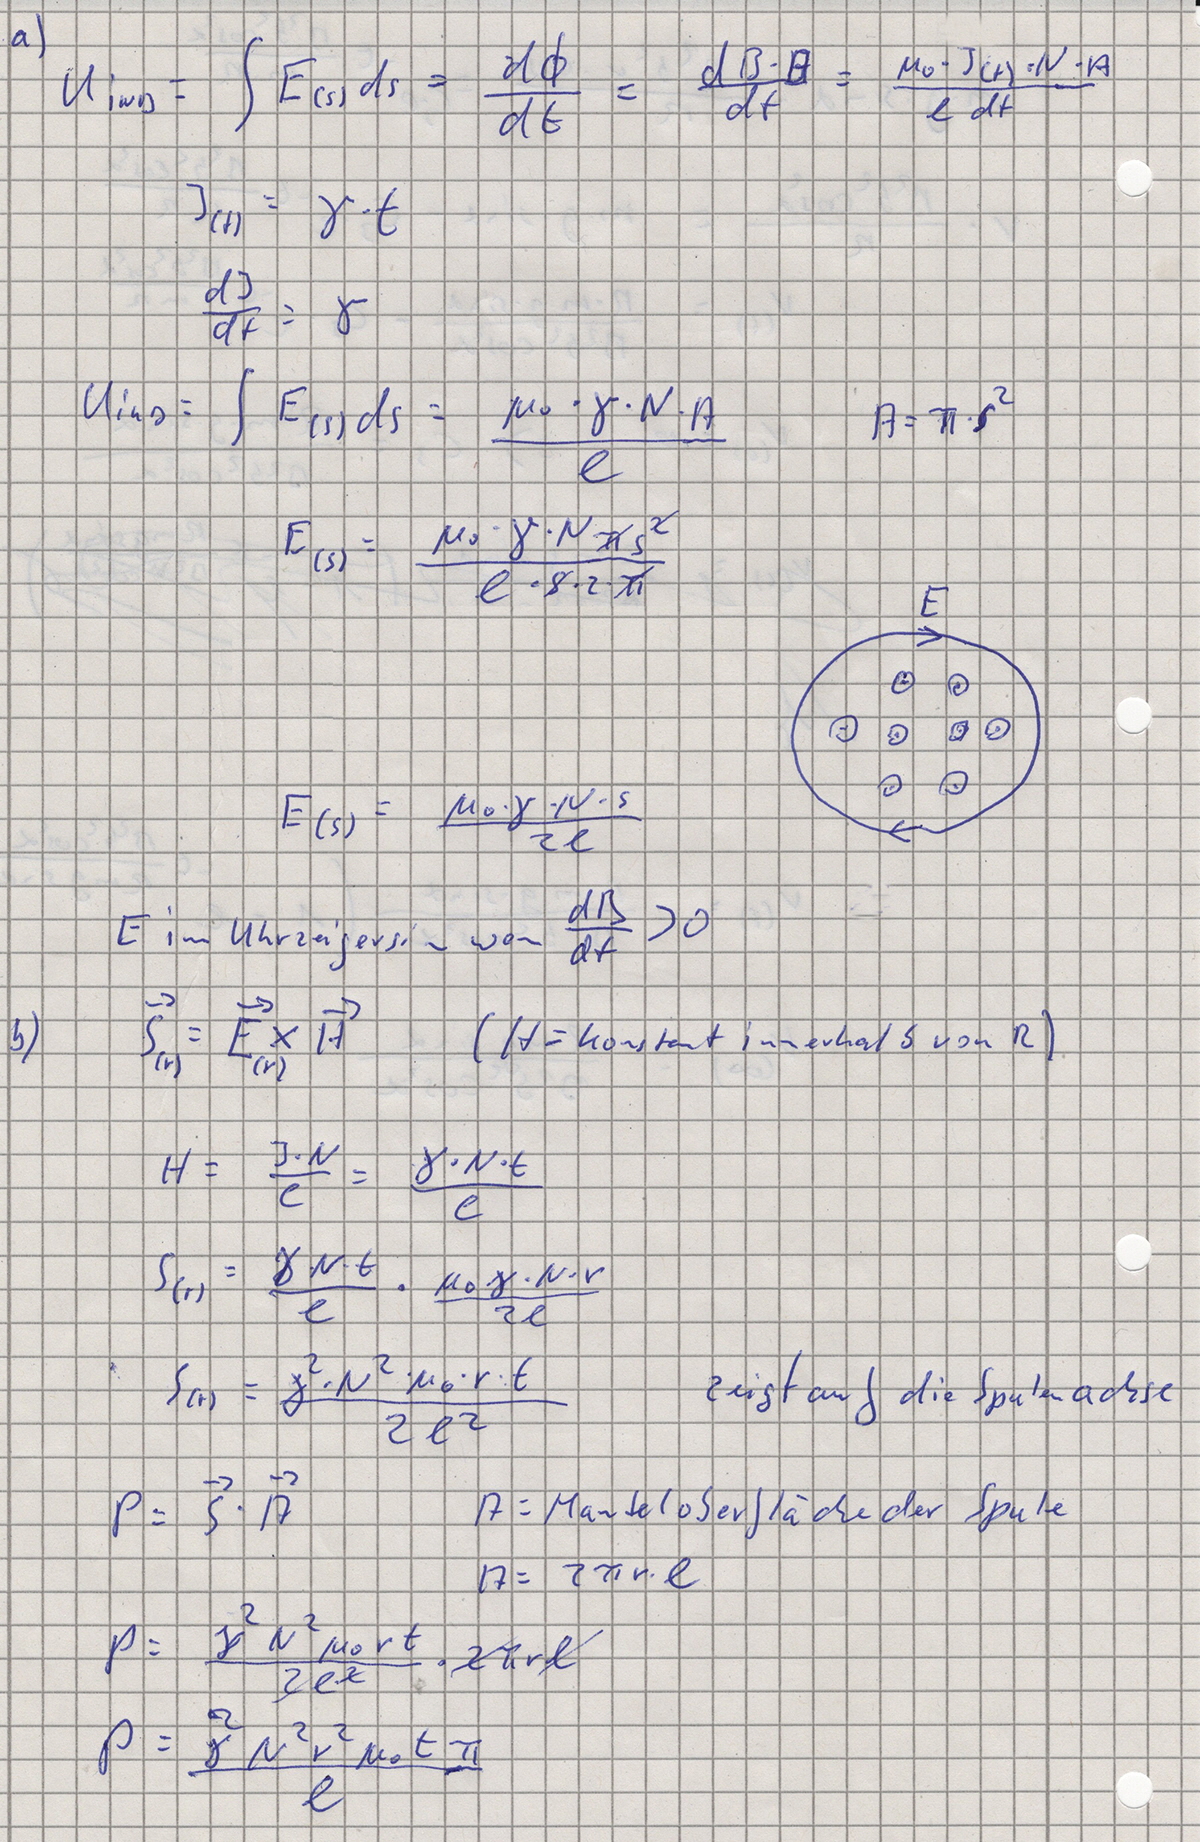 a)
U_ind = ∫ E(s) ds = dϕ/dt = dB·A/dt = μ₀·I(t)·N·A / l dt
I(t) = γ·t
dI/dt = γ
U_ind = ∫ E(s) ds = μ₀·γ·N·A / l    A = π·s²
E(s) = μ₀·γ·N π s² / l·s·2·π
E
E(s) = μ₀·γ·N·s / 2l
E im Uhrzeigersin wen dB/dt > 0
b) S⃗(r) = E⃗(r) × H⃗    (H = konstant innerhalb von R)
H = I·N/l = γ·N·t/l
S(r) = γ·N·t/l · μ₀·γ·N·r/2l
S(r) = γ²·N²·μ₀·r·t / 2l²    zeigt auf die Spulenachse
P = S⃗·A⃗    A = Manteloberfläche der Spule
A = 2πr·l
P = γ²N²μ₀rt/2l² · 2πrl
P = γ²N²r²μ₀tπ / l